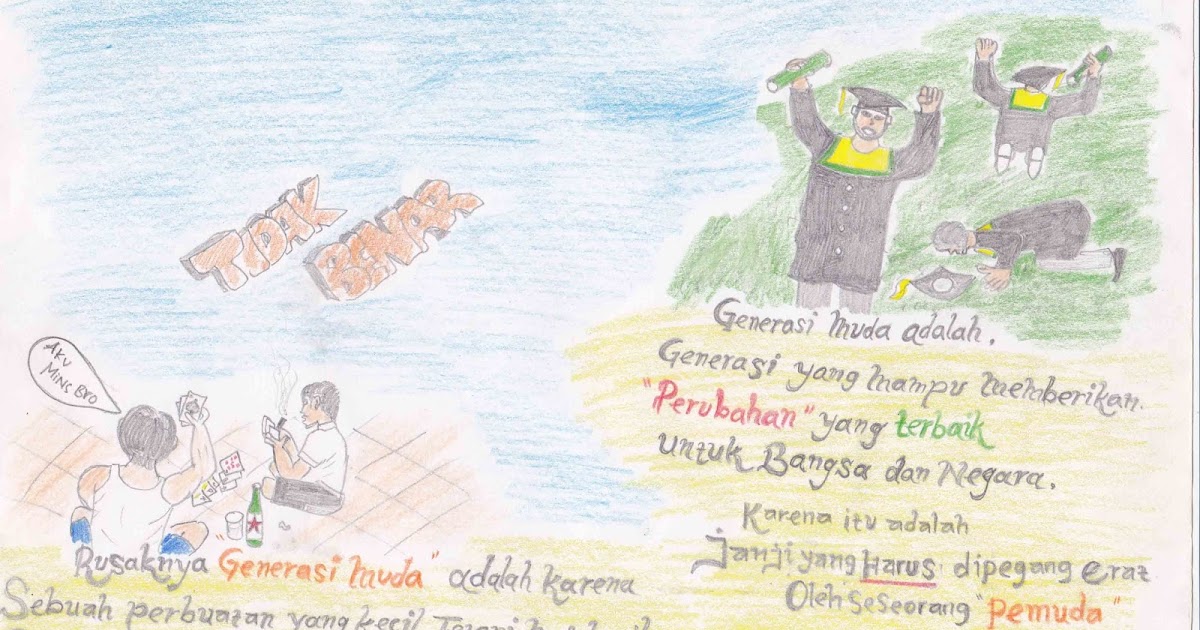 TIDAK
BENAR
AKU
MINS BRO
Generasi Muda adalah.
Generasi yang Mampu Memberikan.
"Perubahan" yang terbaik
untuk Bangsa dan Negara.
Karena itu adalah
Janji yang Harus dipegang erat
Oleh Seseorang "Pemuda"
Rusaknya "Generasi Muda" adalah karena
Sebuah perbuatan yang kecil